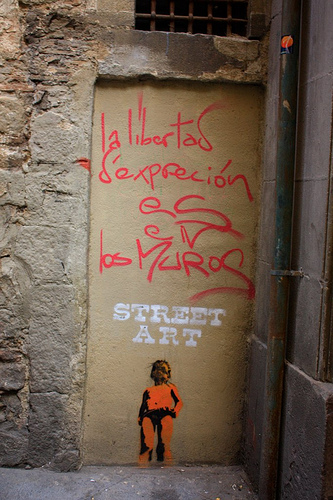 la libertad
d'expreción
es
en
los MUROS
STREET
ART